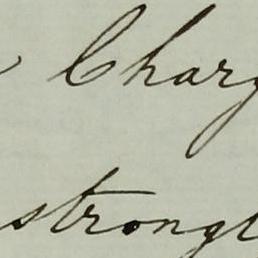 Charg
strongl